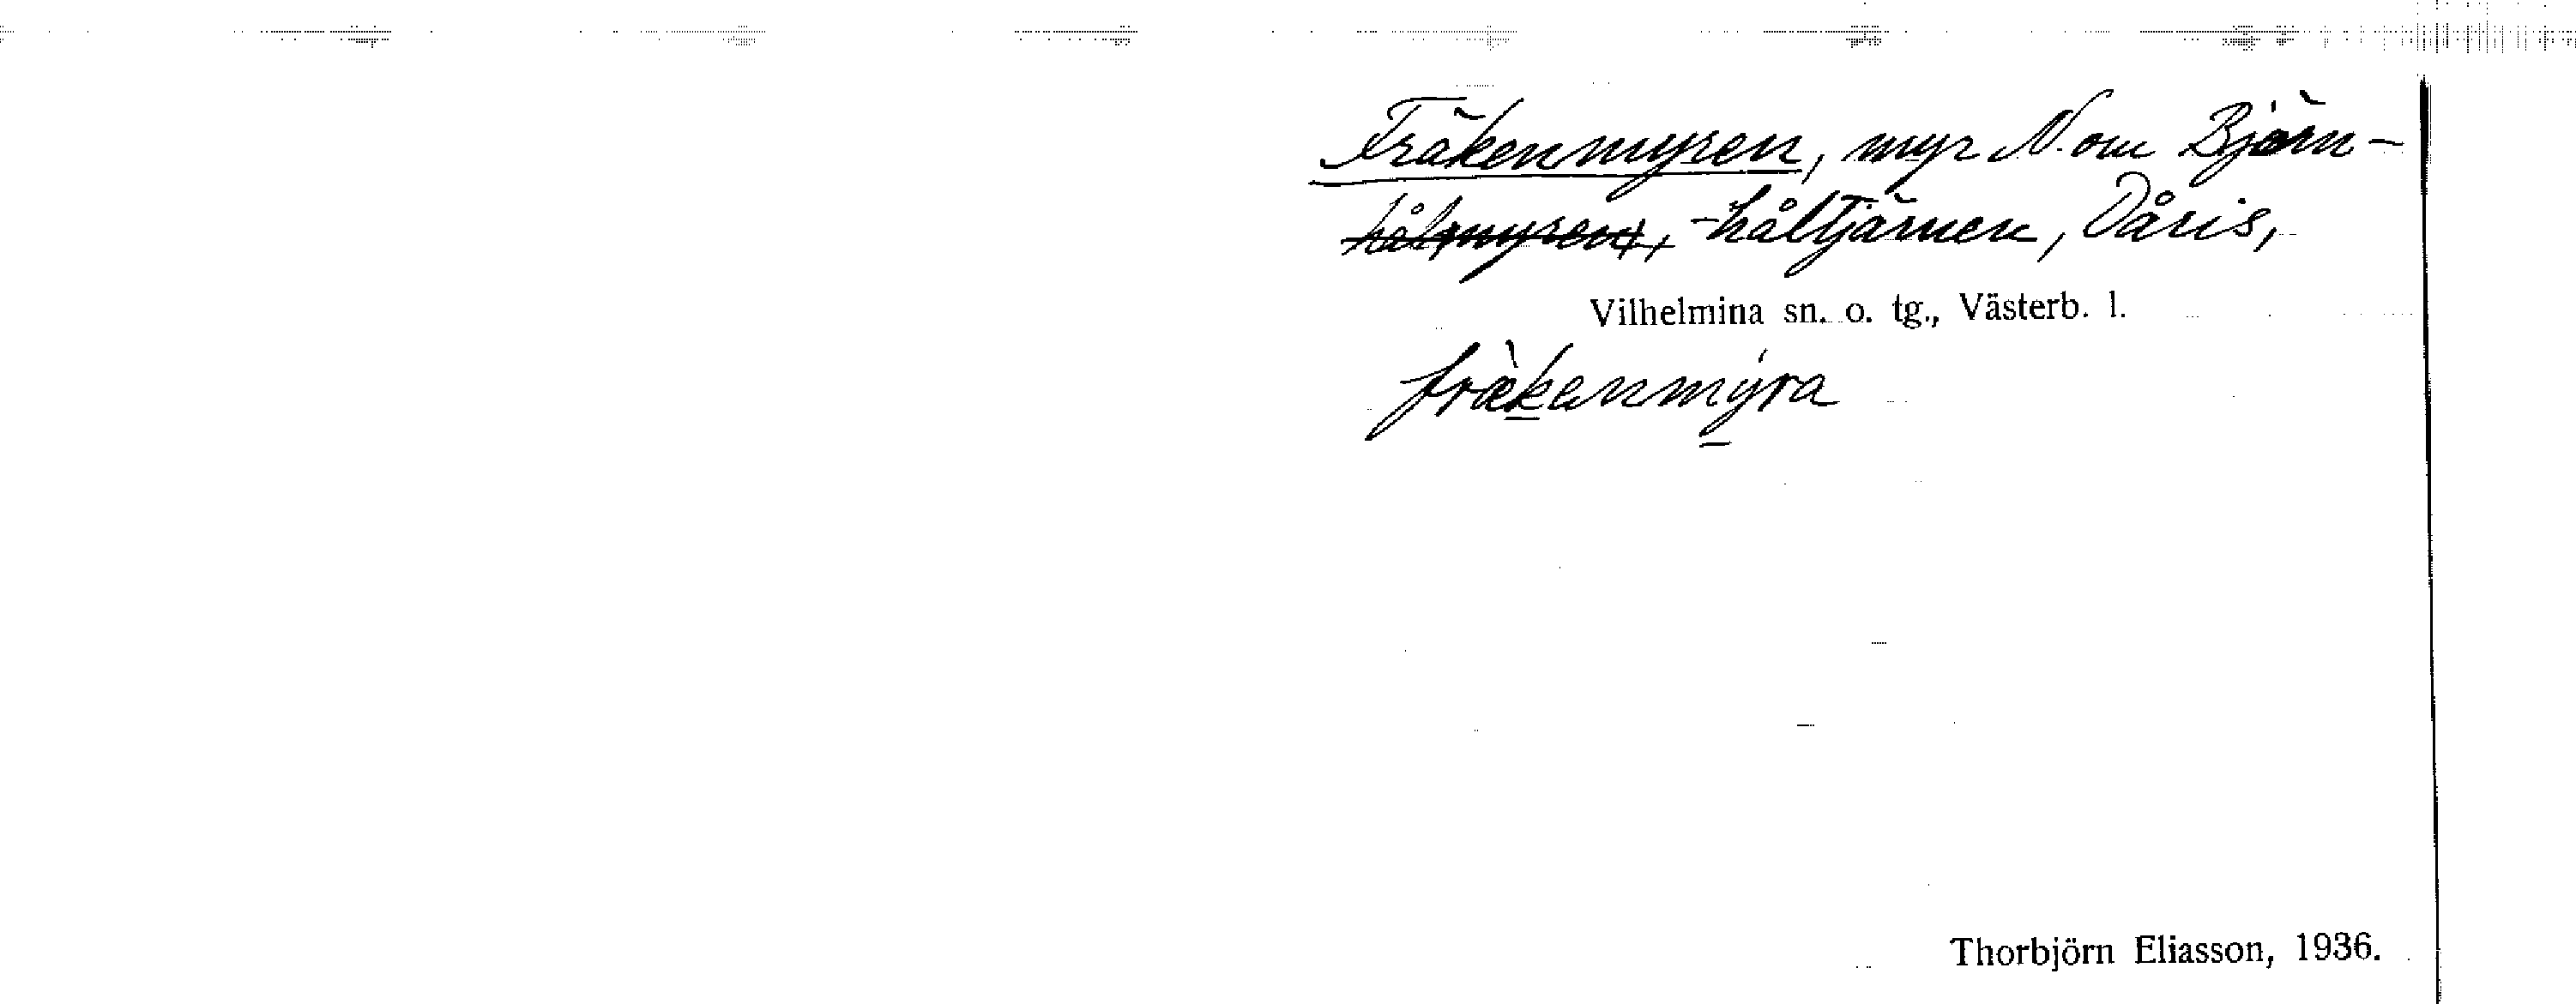 Fräkenmyren, myr N. om Björn-
hålmyren, -håltjärnen, Dåris,
Vilhelmina sn. o. tg., Västerb. l.
fræ̀kenmýra
Thorbjörn Eliasson, 1936.